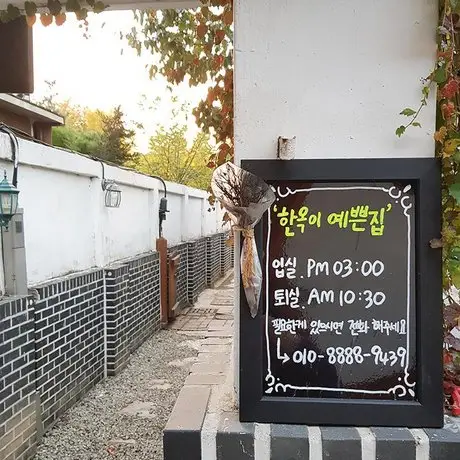 '한옥이 예쁜집'
입실. PM 03:00
퇴실. AM 10:30
필요한게 있으시면 전화 해주세요
↳ 010-8888-9439